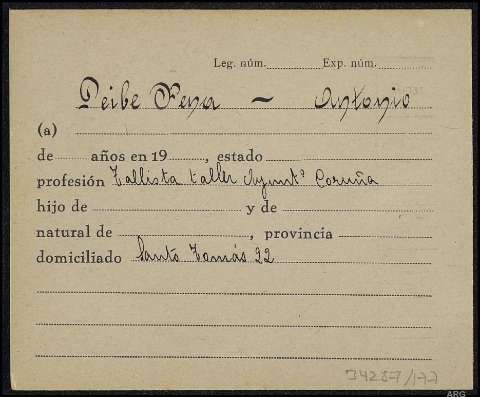 Leg. núm. Exp. núm.
Peibe Pena — Antonio
(a)
de años en 19 , estado
profesión Tallista taller Ayuntº Coruña
hijo de y de
natural de , provincia
domiciliado Santo Tomás 22
J4287/177
ARG